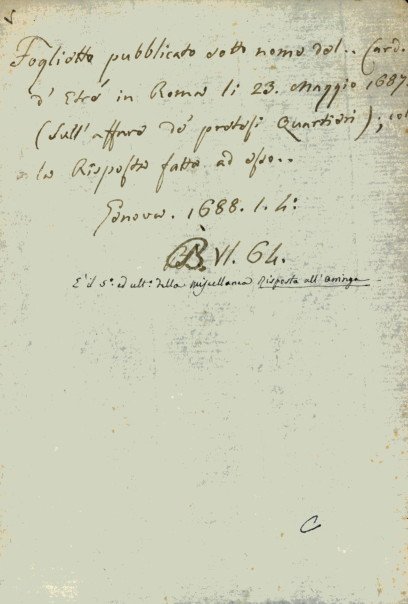 Foglietto pubblicato sotto nome del.. Card.
d'Etré in Roma li 23. Maggio 1687.
(Sull'affare de' pretesi Quartieri); col
la Risposta fatta ad esso..
Genova. 1688. 1. 4:
B. VI. 64.
E' il 5º. ed ult.º della miscellanea Risposta all'arringa
C